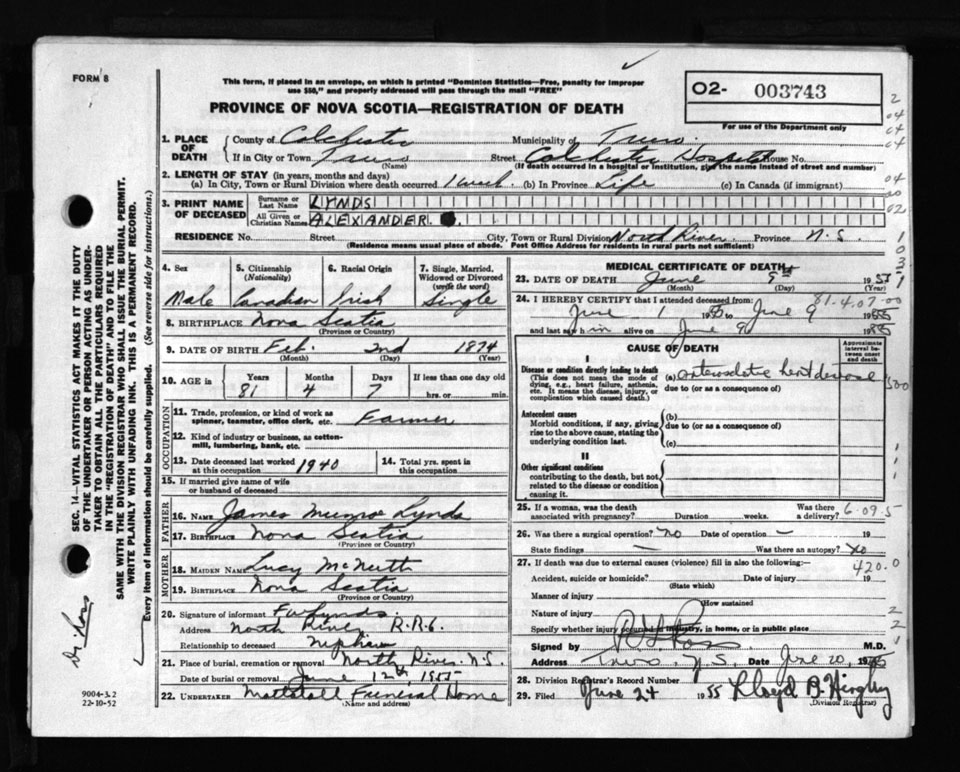 FORM 8
This form, if placed in an envelope, on which is printed "Dominion Statistics—Free, penalty for improper
use $50," and properly addressed will pass through the mail "FREE"
O2- 003743
For use of the Department only
PROVINCE OF NOVA SCOTIA—REGISTRATION OF DEATH
1. PLACE OF DEATH
County of Colchester Municipality of Truro
If in City or Town Truro Street Colchester Hospital House No.
(Name) (If death occurred in a hospital or institution, give the name instead of street and number)
2. LENGTH OF STAY (in years, months and days)
(a) In City, Town or Rural Division where death occurred 1 week (b) In Province Life (c) In Canada (if immigrant)
3. PRINT NAME OF DECEASED
Surname or Last Name LYNDS
All Given or Christian Names ALEXANDER
RESIDENCE No. Street City, Town or Rural Division North River Province N.S.
(Residence means usual place of abode. Post Office Address for residents in rural parts not sufficient)
4. Sex
Male
5. Citizenship (Nationality)
Canadian
6. Racial Origin
Irish
7. Single, Married, Widowed or Divorced (write the word)
Single
8. BIRTHPLACE Nova Scotia
(Province or Country)
9. DATE OF BIRTH Feb. 2nd 1874
(Month) (Day) (Year)
10. AGE in Years Months Days If less than one day old
81 4 7 hrs. or min.
OCCUPATION
11. Trade, profession, or kind of work as
spinner, teamster, office clerk, etc. Farmer
12. Kind of industry or business, as cotton-
mill, lumbering, bank, etc.
13. Date deceased last worked
at this occupation 1940
14. Total yrs. spent in
this occupation
15. If married give name of wife
or husband of deceased
FATHER
16. NAME James Munroe Lynds
17. BIRTHPLACE Nova Scotia
(Province or Country)
MOTHER
18. MAIDEN NAME Lucy McNutt
19. BIRTHPLACE Nova Scotia
(Province or Country)
20. Signature of informant Lynds
Address North River R.R.6.
Relationship to deceased Nephew
21. Place of burial, cremation or removal North River. N.S.
Date of burial or removal June 12th 1955
22. UNDERTAKER Mattatall Funeral Home
(Name and address)
MEDICAL CERTIFICATE OF DEATH
23. DATE OF DEATH June 1955
(Month) (Day)
24. I HEREBY CERTIFY that I attended deceased from: 81.4.07.00
June 1 1955 to June 9 1955
and last saw him alive on June 9 1955
CAUSE OF DEATH
Approximate interval between onset and death
I
Disease or condition directly leading to death
(This does not mean the mode of
dying, e.g., heart failure, asthenia,
etc. It means the disease, injury, or
complication which caused death.)
(a) heart disease
due to (or as a consequence of)
Antecedent causes
Morbid conditions, if any, giving
rise to the above cause, stating the
underlying condition last.
(b)
due to (or as a consequence of)
(c)
II
Other significant conditions
contributing to the death, but not
related to the disease or condition
causing it.
25. If a woman, was the death Was there
associated with pregnancy? Duration weeks. a delivery? 6.09.5
26. Was there a surgical operation? No Date of operation — 19
State findings — Was there an autopsy? No
27. If death was due to external causes (violence) fill in also the following:— 420.0
Accident, suicide or homicide? Date of injury 19
(State which)
Manner of injury
(How sustained
Nature of injury
Specify whether injury occurred in industry, in home, or in public place
Signed by Ross M.D.
Address Truro N.S. Date June 20, 1955
28. Division Registrar's Record Number
29. Filed June 24 1955 Lloyd B.
(Division Registrar)
SEC. 14—VITAL STATISTICS ACT MAKES IT THE DUTY
OF THE UNDERTAKER OR PERSON ACTING AS UNDER-
TAKER TO OBTAIN ALL THE PARTICULARS REQUIRED
IN THE "REGISTRATION OF DEATH" AND TO FILE THE
SAME WITH THE DIVISION REGISTRAR WHO SHALL ISSUE THE BURIAL PERMIT.
WRITE PLAINLY WITH UNFADING INK. THIS IS A PERMANENT RECORD.
Every item of Information should be carefully supplied. (See reverse side for instructions.)
Dr. Ross
9004-3.2
22-10-52